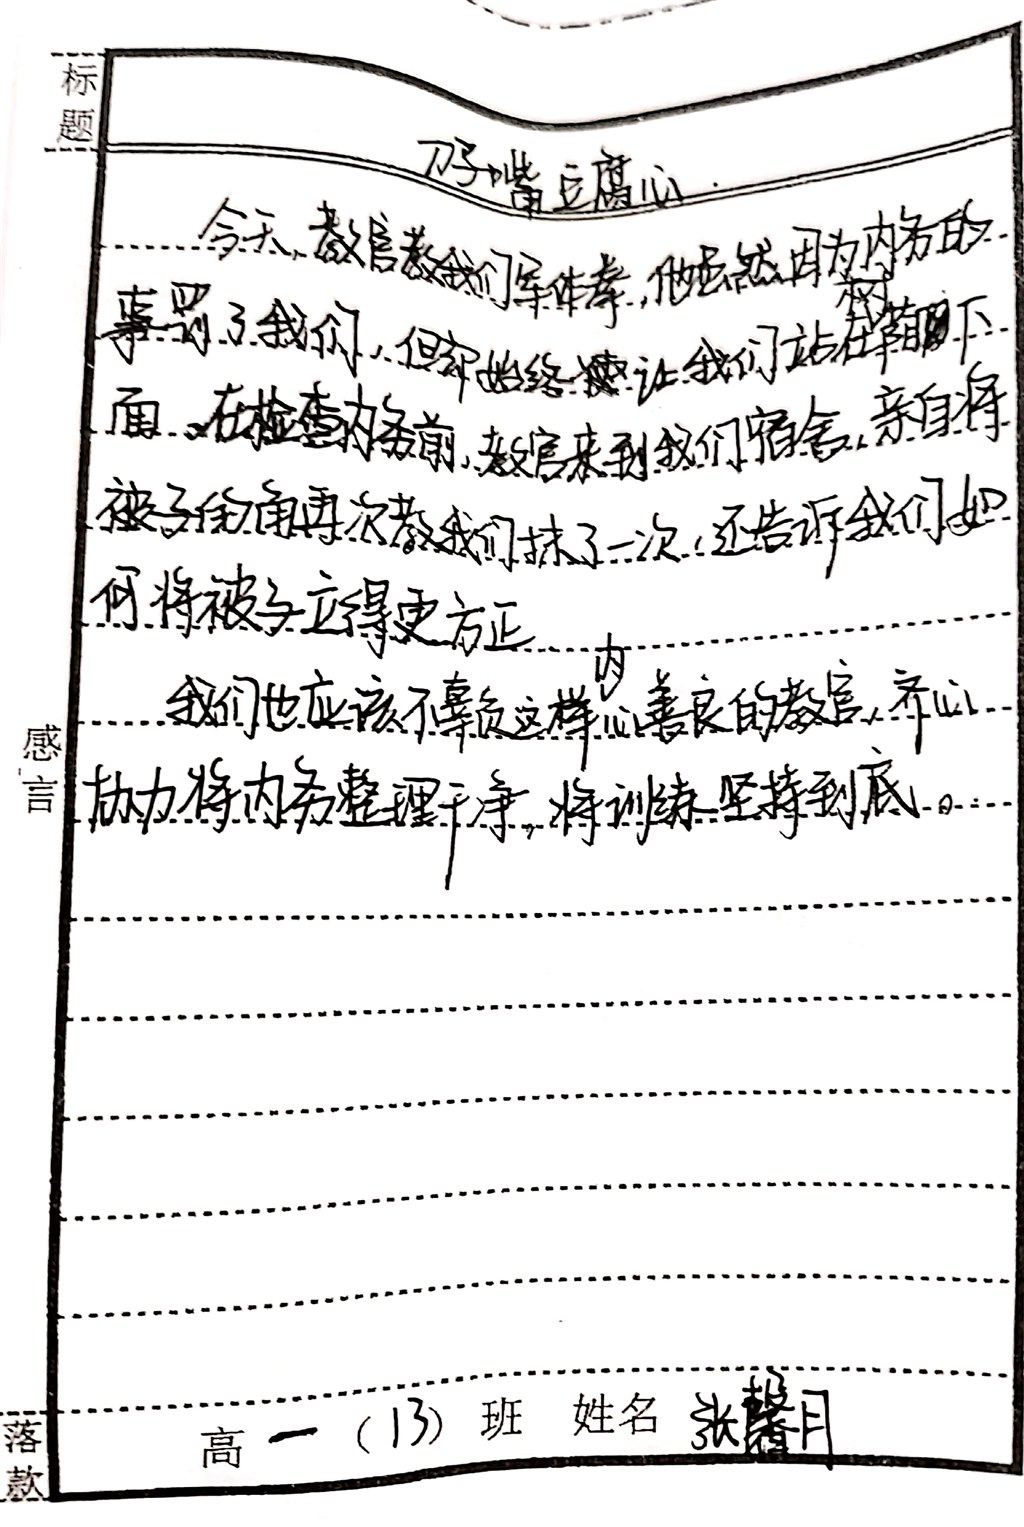 标题
刀子嘴豆腐心
今天,教官教我们军体拳,他虽然因为内务的
事罚了我们,但却始终让我们站在树荫下
面。在检查内务前,教官来到我们宿舍,亲自将
被子的角再次教我们抹了一次,还告诉我们如
何将被子立得更方正
我们也应该不辜负这样内心善良的教官,齐心
协力将内务整理干净,将训练坚持到底。
感言
落款
高一(13)班 姓名 张馨月